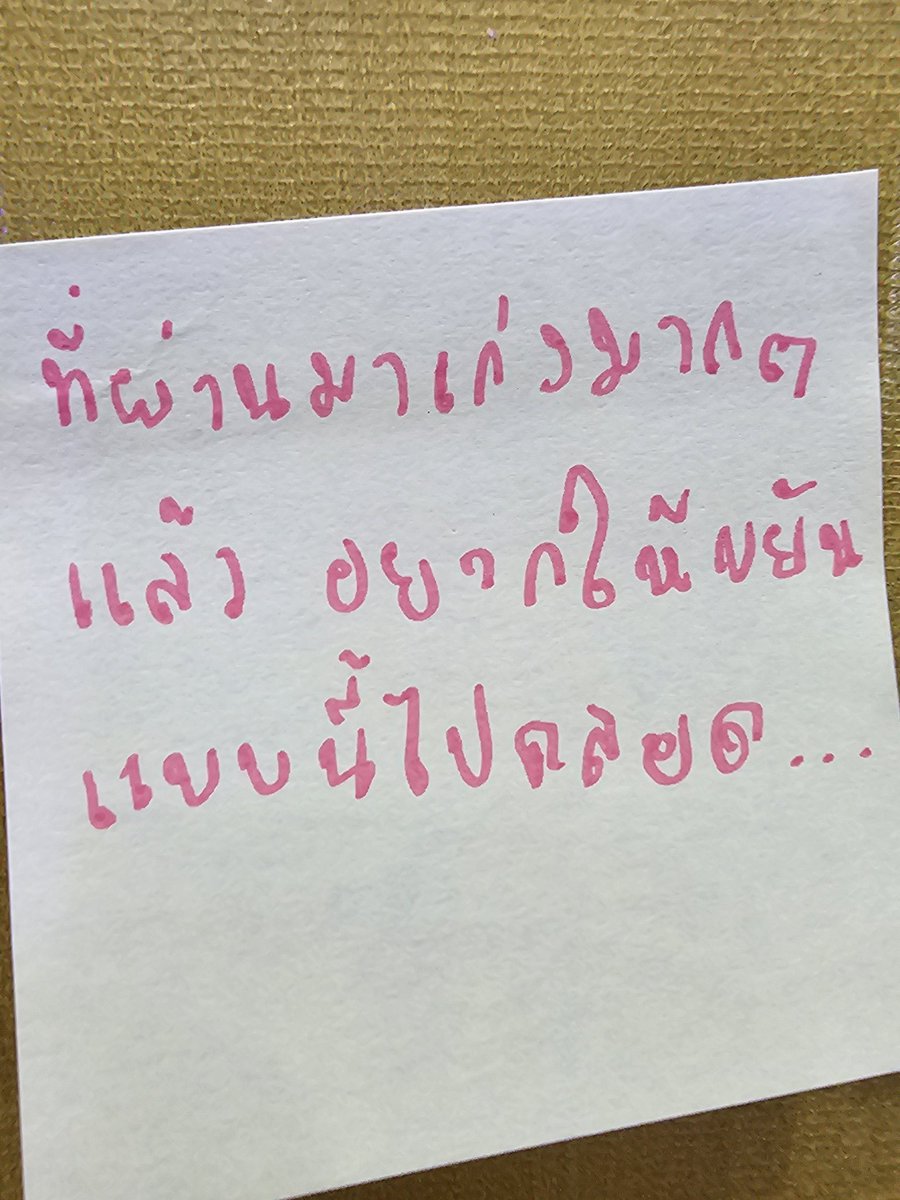 ที่ผ่านมาเก่งมากๆ
แล้ว อยากให้ขยัน
แบบนี้ไปตลอด...